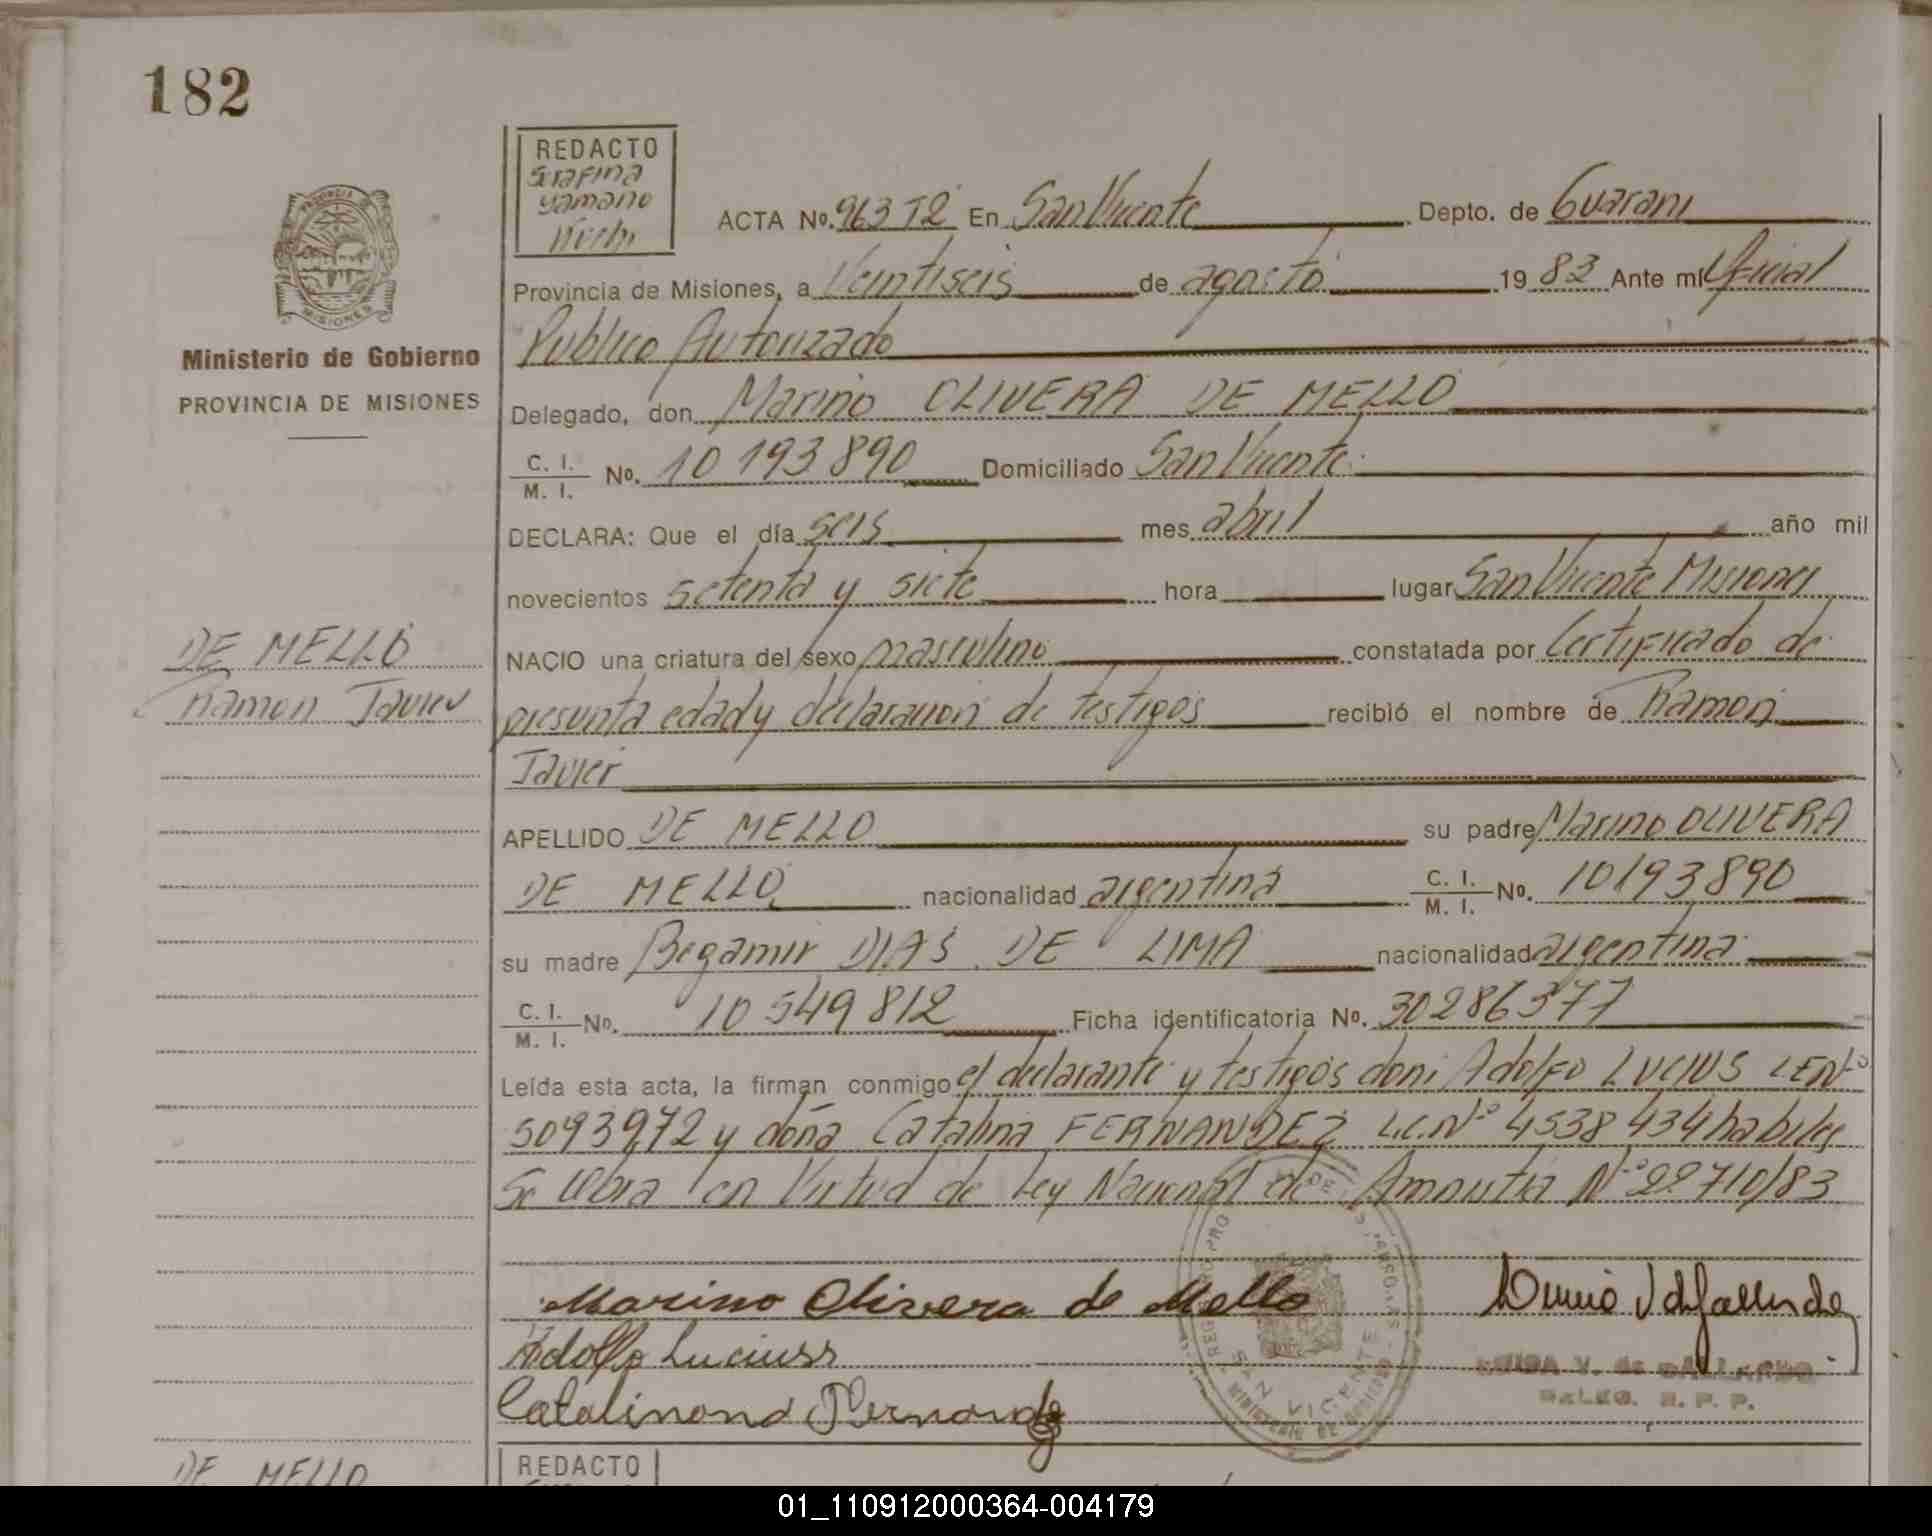 182
REDACTO
Serafina
Yamano
ACTA No. 963 T2 En San Vicente Depto. de Guarani
Provincia de Misiones, a Veintiseis de agosto 1983 Ante mí Oficial
Publico Autorizado
PROVINCIA DE
MISIONES
Ministerio de Gobierno
PROVINCIA DE MISIONES
Delegado, don Marino OLIVERA DE MELLO
C. I.
M. I. No. 10 193 890 Domiciliado San Vicente
DECLARA: Que el día seis mes abril año mil
novecientos setenta y siete hora lugar San Vicente Misiones
DE MELLO
Ramon Javier
NACIO una criatura del sexo masculino constatada por Certificado de
presunta edad y declaracion de testigos recibió el nombre de Ramon
Javier
APELLIDO DE MELLO su padre Marino OLIVERA
DE MELLO nacionalidad argentina C. I.
M. I. No. 10193890
su madre Begamir DIAS DE LIMA nacionalidad argentina
C. I.
M. I. No. 10 549 812 Ficha identificatoria No. 30286377
Leída esta acta, la firman conmigo el declarante y testigos don: Adolfo LUCIUS LEN°
5093972 y doña Catalina FERNANDEZ L.C.N° 4538 434 habiles
Se labra en Virtud de Ley Nacional de Amnistia N° 22710/83
Marino Olivera de Mello
Adolfo Luciuss
SAN VICENTE
LUISA V. de GALLARDO
DELEG. R. P. P.
DE MELLO
REDACTO
01_110912000364-004179